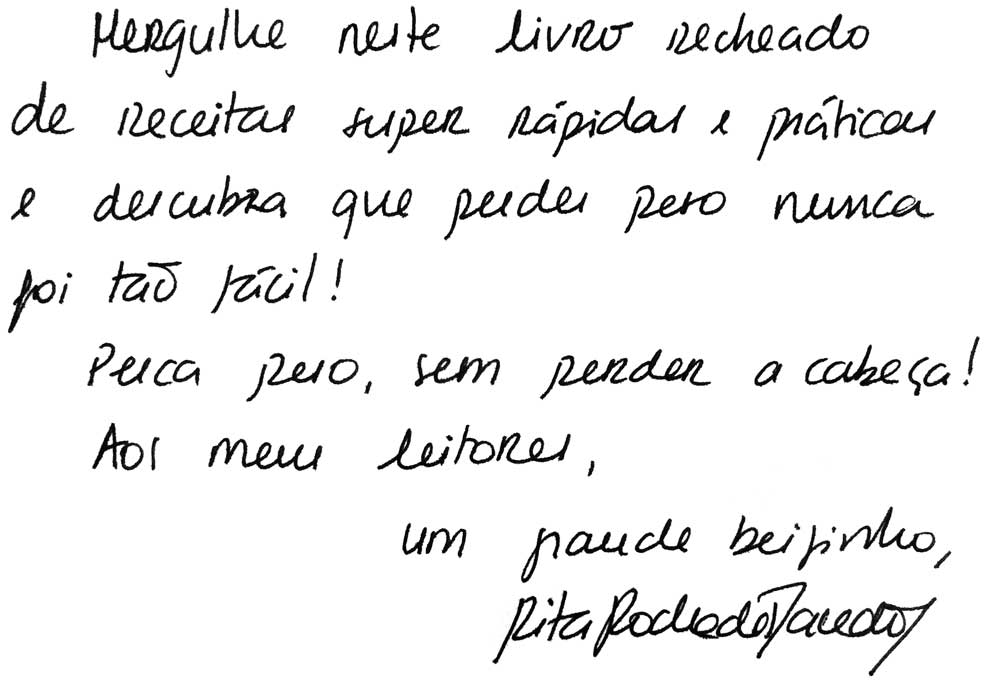 Mergulhe neste livro recheado
de receitas super rápidas e práticas
e descubra que perder peso nunca
foi tão fácil!
Perca peso, sem perder a cabeça!
Aos meus leitores,
um grande beijinho,
Rita